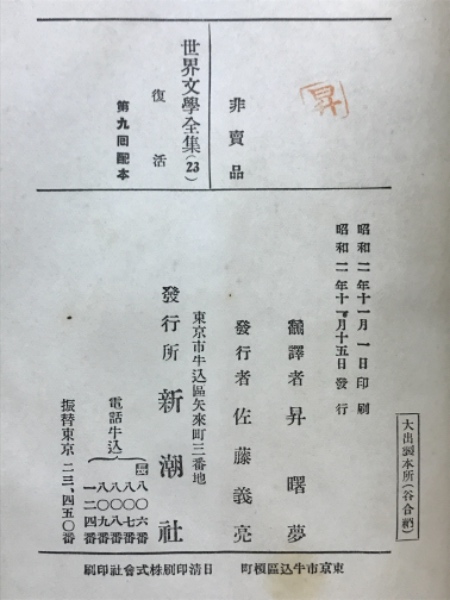 昇
非賣品
世界文學全集(23)
復活
第九回配本
昭和二年十一月一日印刷
昭和二年十一月十五日發行
飜譯者 昇曙夢
發行者 佐藤義亮
東京市牛込區矢來町三番地
發行所 新潮社
電話牛込
八〇六番
八〇七番
八〇八番
八〇九番
一二四番
振替東京二三、四五〇番
大出製本所(谷合納)
東京市牛込區榎町 日清印刷株式會社印刷